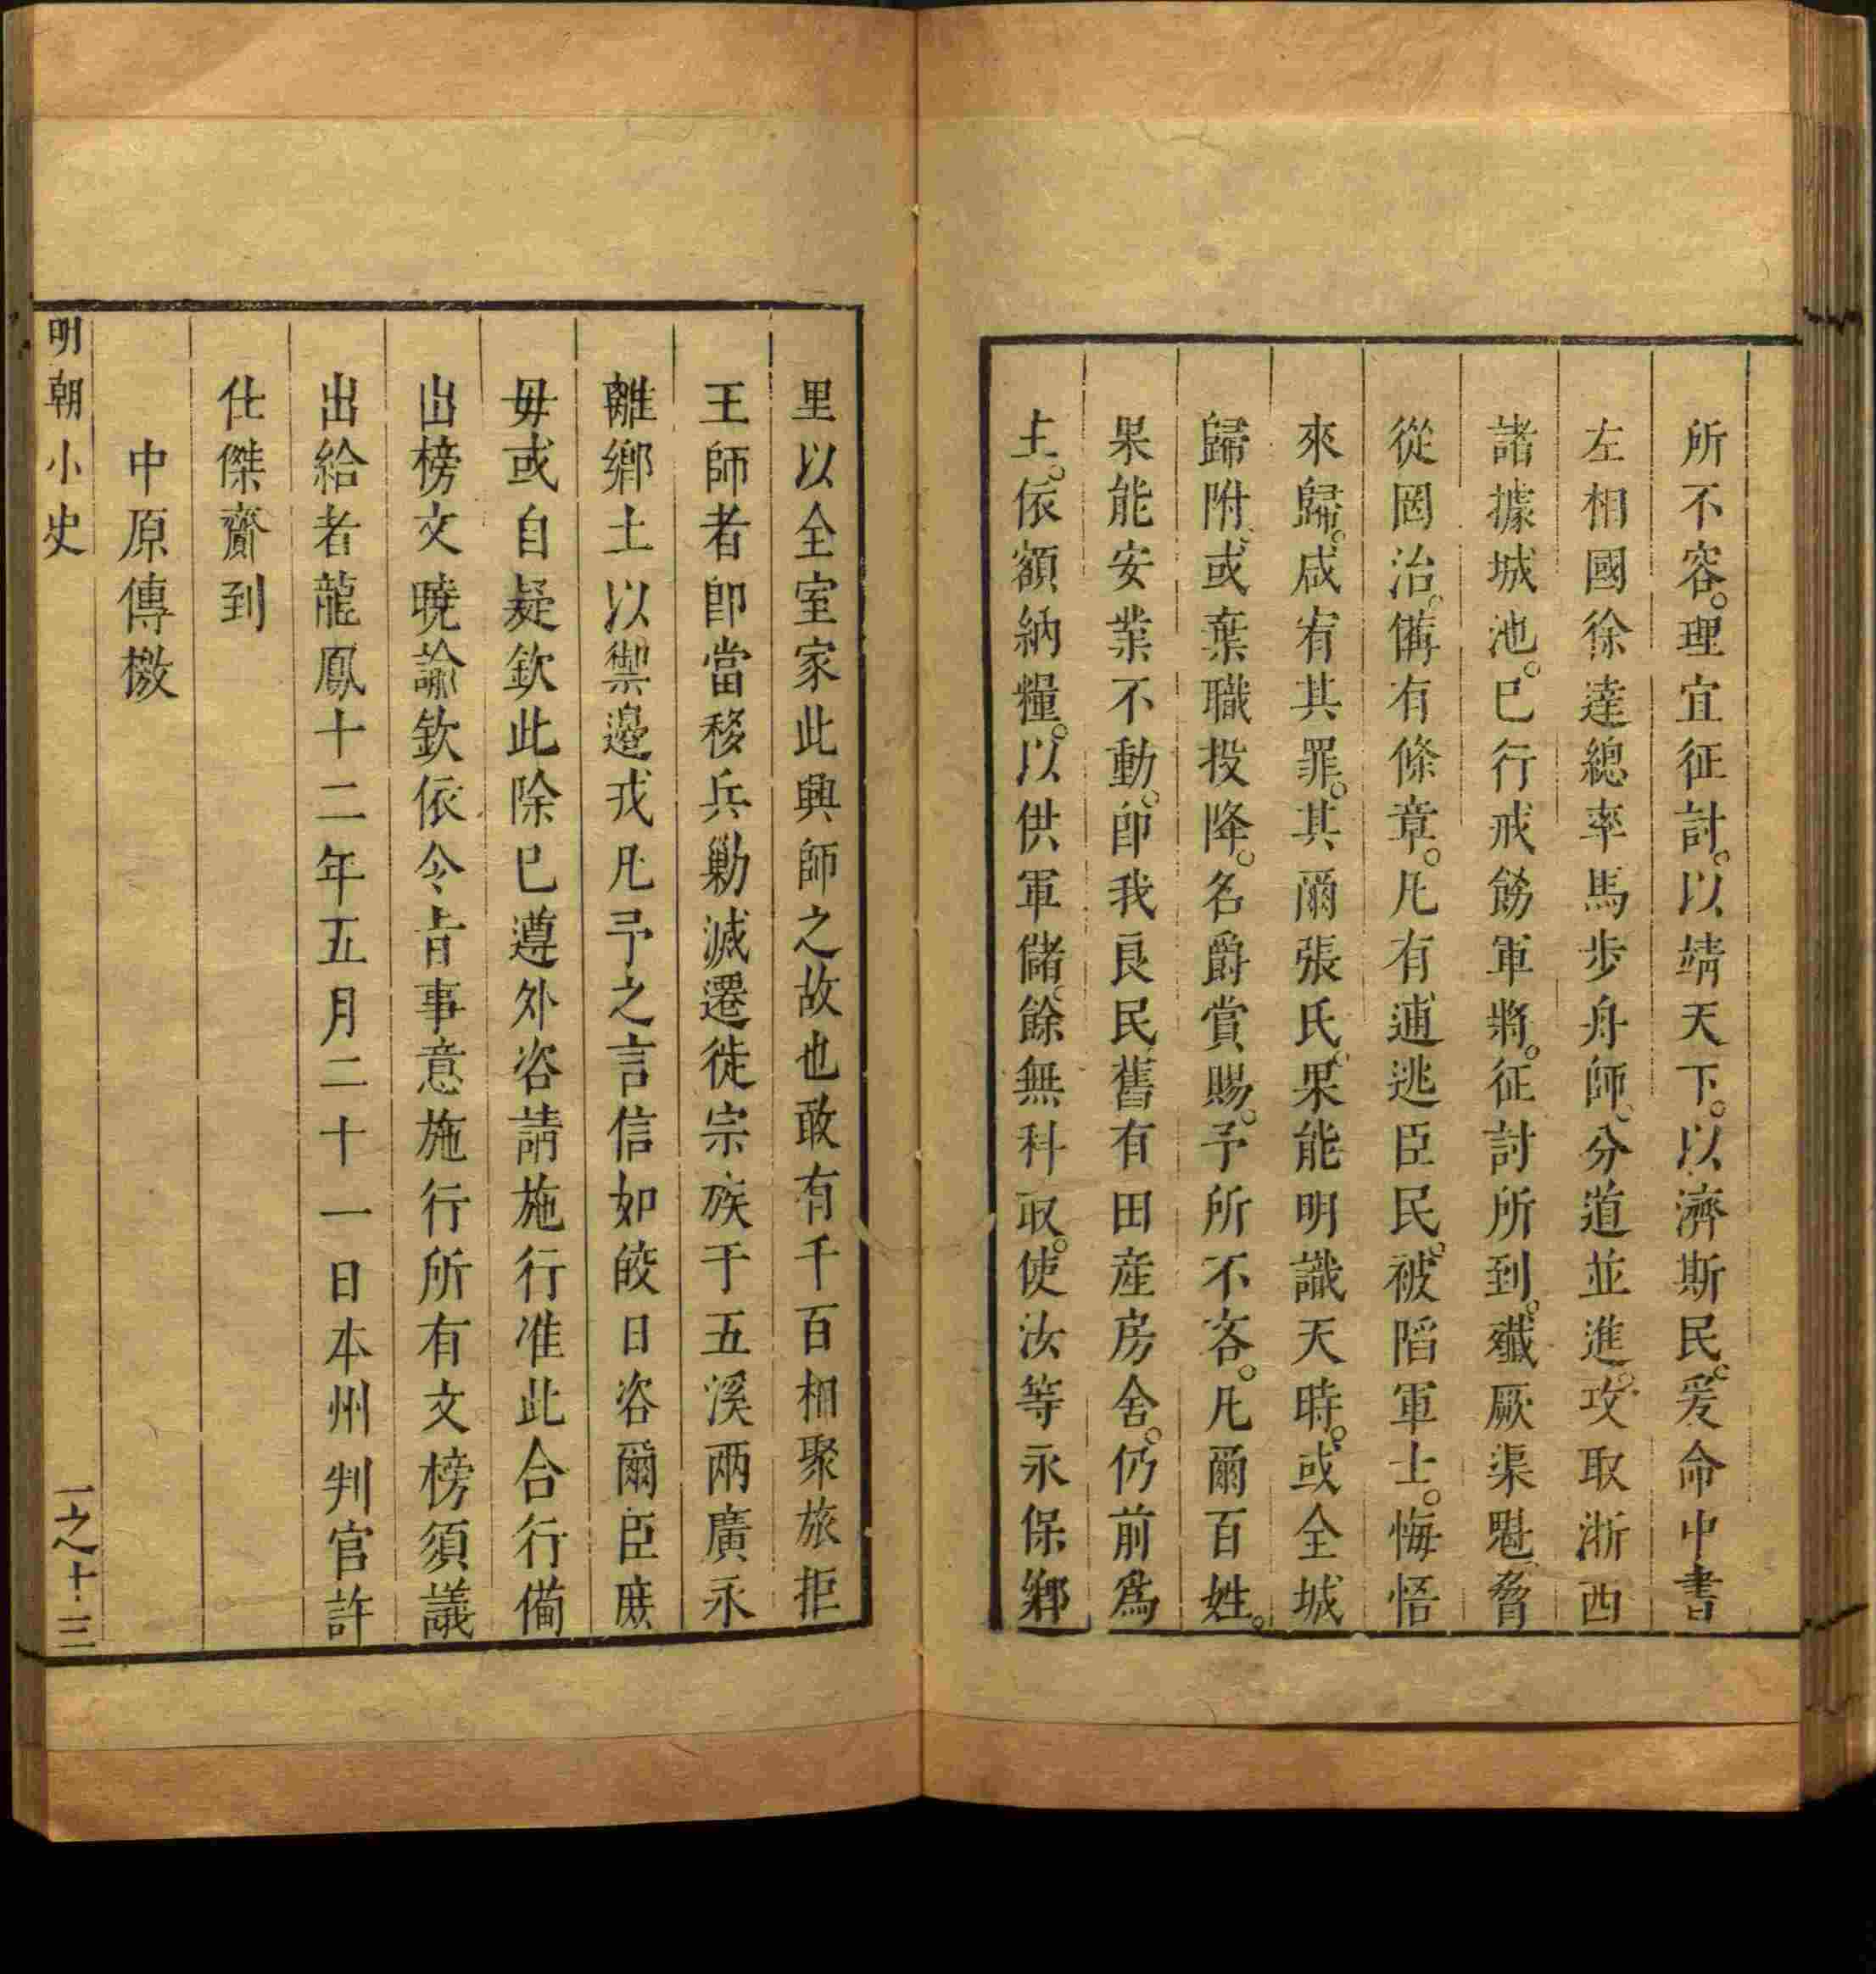 所不容理宜征討以靖天下以濟斯民爰命中書
左相國徐達總率馬步舟師分道並進攻取浙西
諸據城池已行戒飭軍將征討所到殲厥渠魁脅
從罔治備有條章凡有逋逃臣民被陷軍士悔悟
來歸咸宥其罪其爾張氏果能明識天時或全城
歸附或棄職投降名爵賞賜予所不吝凡爾百姓
果能安業不動卽我良民舊有田産房舍仍前爲
主依額納糧以供軍儲餘無科取使汝等永保鄉
里以全室家此興師之故也敢有千百相聚旅拒
王師者卽當移兵勦滅遷徙宗族于五溪兩廣永
離鄉土以禦邊戎凡予之言信如皎日咨爾臣庶
毋或自疑欽此除已遵外咨請施行准此合行備
出榜文曉諭欽依令㫖事意施行所有文榜須議
出給者龍鳳十二年五月二十一日本州判官許
仕傑齎到
中原傳檄
明朝小史
一之十三